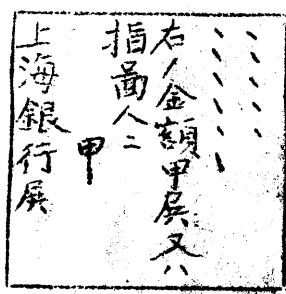 、、、、、
、、、、、、
右ノ金額甲殿又ハ
指圖人ニ
甲
上海銀行殿